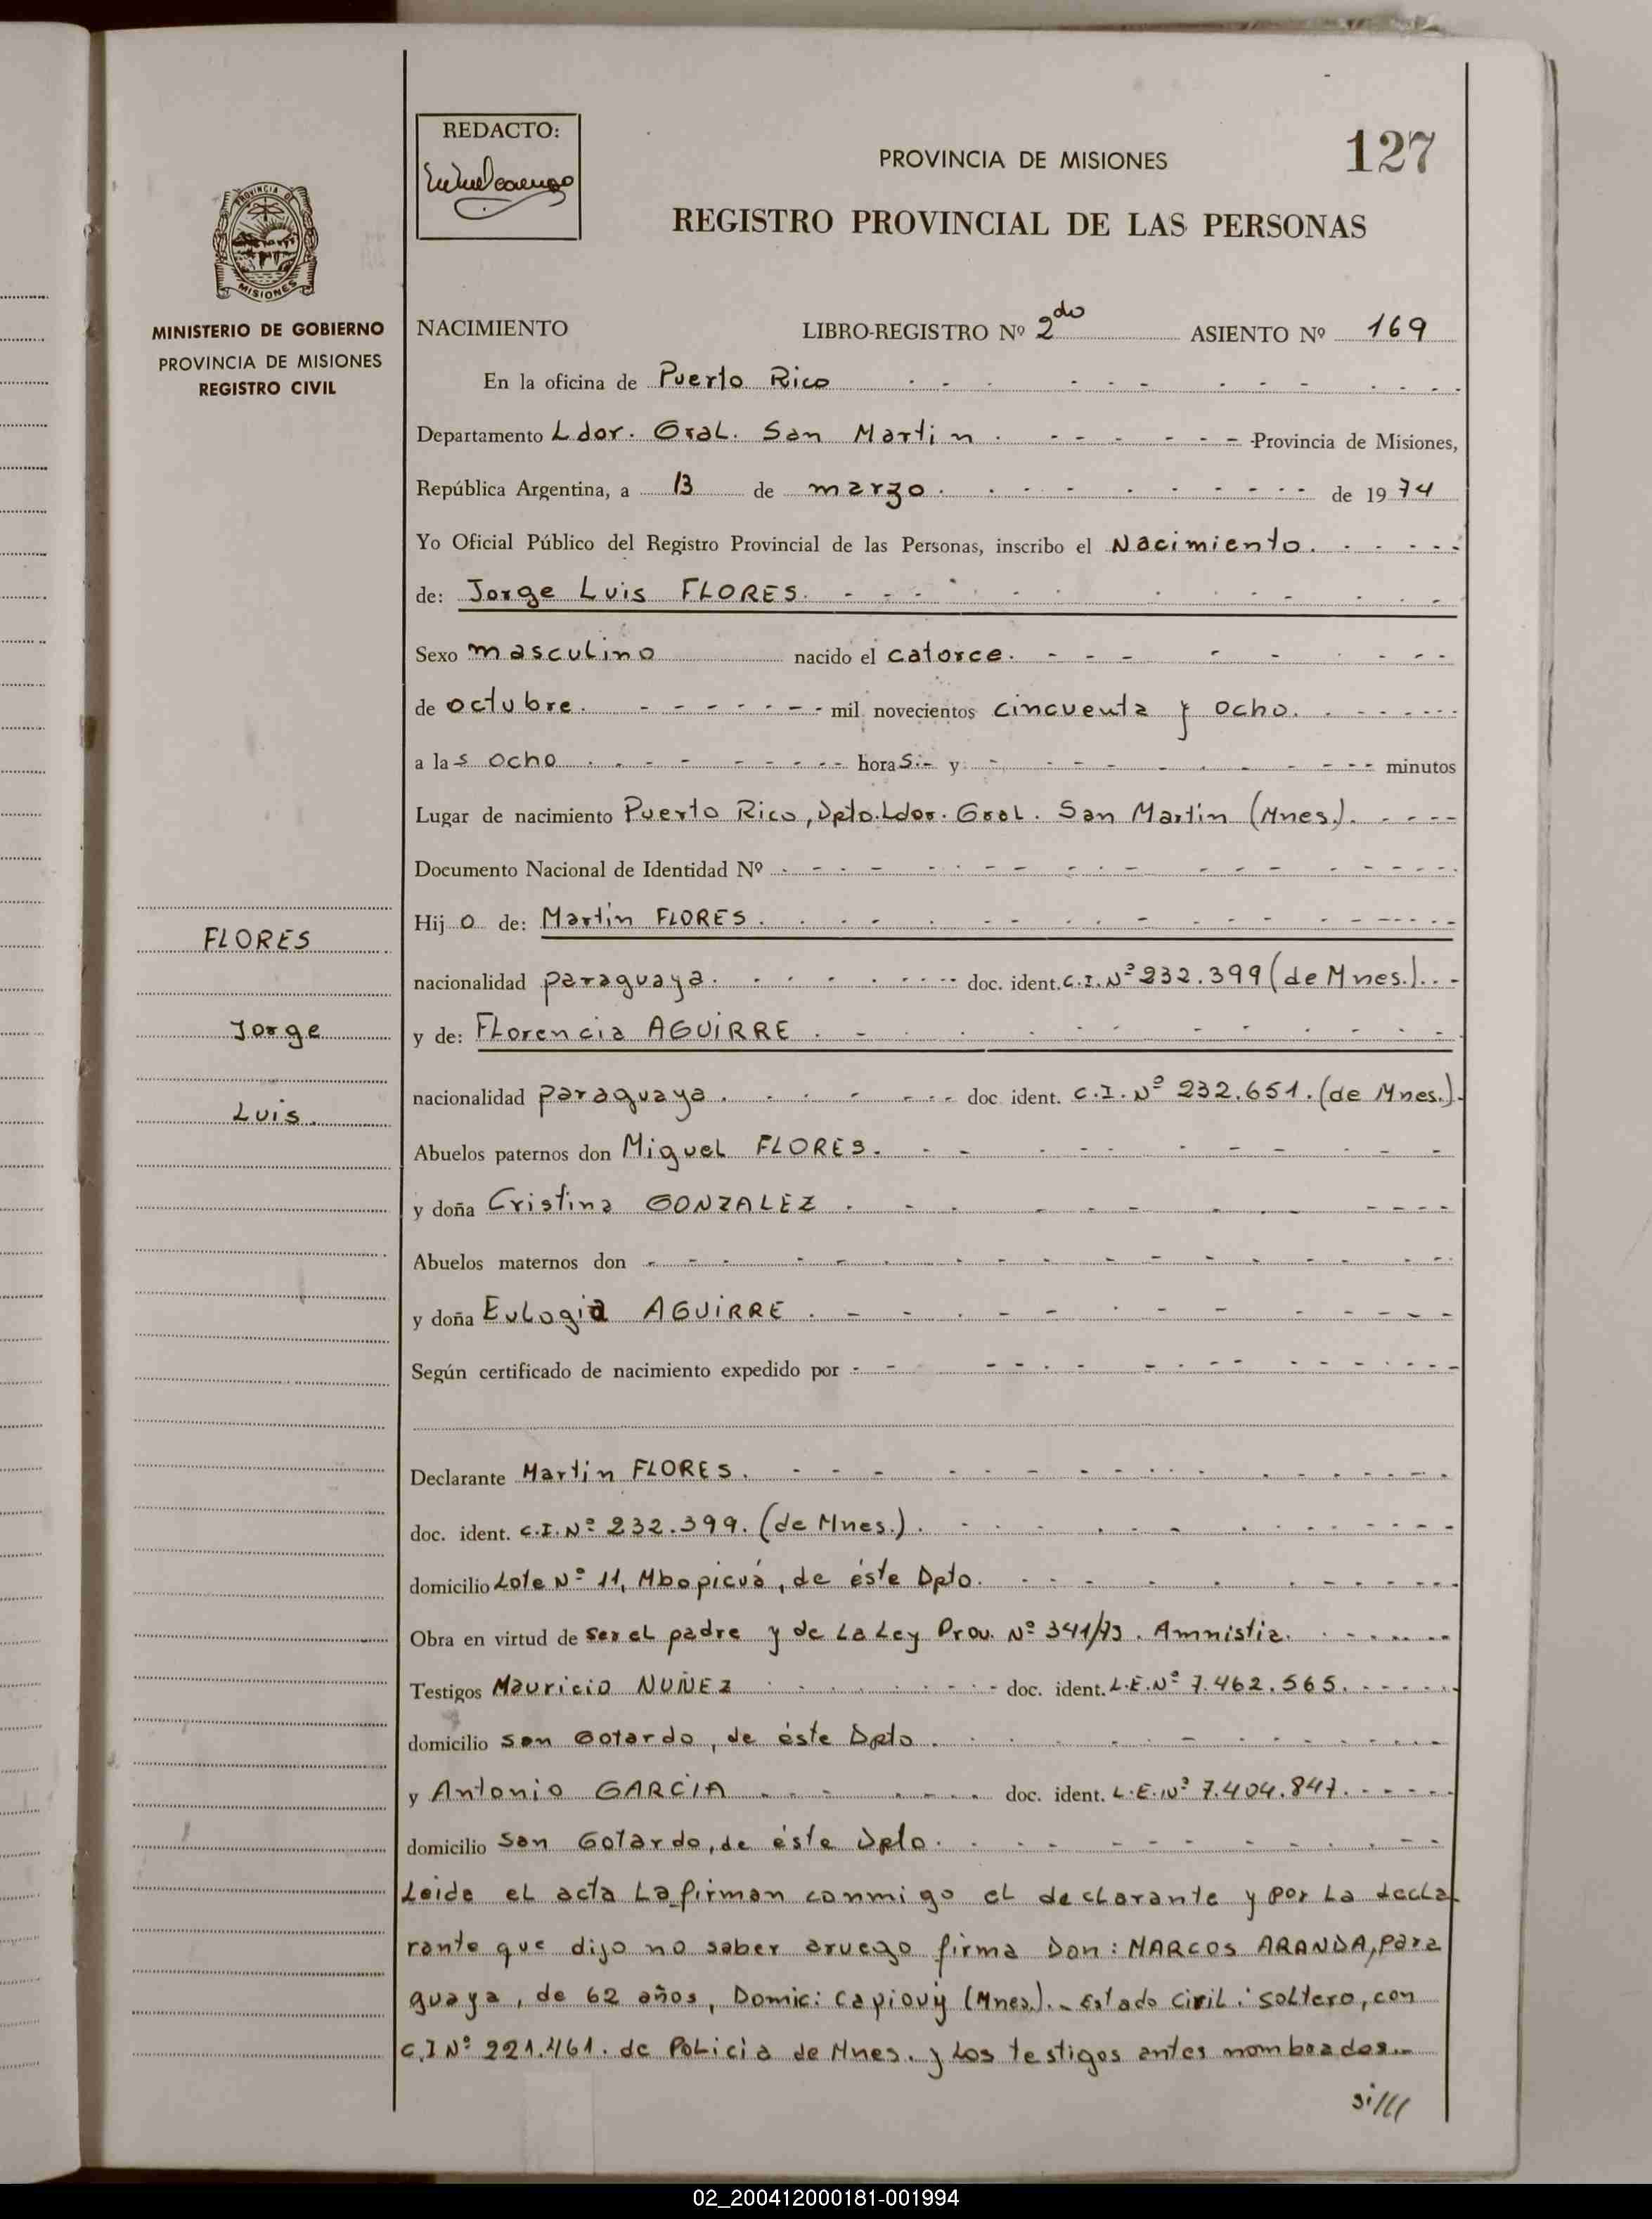 REDACTO:
PROVINCIA DE MISIONES
127
REGISTRO PROVINCIAL DE LAS PERSONAS
PROVINCIA DE
MISIONES
MINISTERIO DE GOBIERNO
PROVINCIA DE MISIONES
REGISTRO CIVIL
NACIMIENTO LIBRO-REGISTRO Nº 2do ASIENTO Nº 169
En la oficina de Puerto Rico
Departamento Ldor. Gral. San Martin. Provincia de Misiones,
República Argentina, a 13 de marzo. de 1974
Yo Oficial Público del Registro Provincial de las Personas, inscribo el Nacimiento.
de: Jorge Luis FLORES.
Sexo masculino nacido el catorce.
de octubre. mil novecientos cincuenta y ocho.
a las ocho. horas.- y minutos
Lugar de nacimiento Puerto Rico, Dpto. Ldor. Gral. San Martin (Mnes.).
Documento Nacional de Identidad Nº
Hijo de: Martin FLORES.
FLORES
nacionalidad paraguaya. doc. ident. C.I. Nº 232.399 (de Mnes.).
Jorge
y de: Florencia AGUIRRE.
nacionalidad paraguaya. doc. ident. C.I. Nº 232.651. (de Mnes.).
Luis.
Abuelos paternos don Miguel FLORES.
y doña Cristina GONZALEZ.
Abuelos maternos don
y doña Eulogia AGUIRRE.
Según certificado de nacimiento expedido por
Declarante Martin FLORES.
doc. ident. C.I. Nº 232.399. (de Mnes.).
domicilio Lote Nº 11, Mbopicuá, de éste Dpto.
Obra en virtud de ser el padre y de la Ley Prov. Nº 341/73. Amnistia.
Testigos Mauricio NUÑEZ doc. ident. L.E. Nº 7.462.565.
domicilio san Gotardo, de éste Dpto.
y Antonio GARCIA doc. ident. L.E. Nº 7.404.847.
domicilio san Gotardo, de éste Dpto.
Leida el acta la firman conmigo el declarante y por la decla
rante que dijo no saber aruego firma Don: MARCOS ARANDA, para
guaya, de 62 años, Domic: Capiovÿ (Mnes.).- Estado Civil: soltero, con
C.I Nº 221.461. de Policia de Mnes. y los testigos antes nombrados.-
si///
02_200412000181-001994